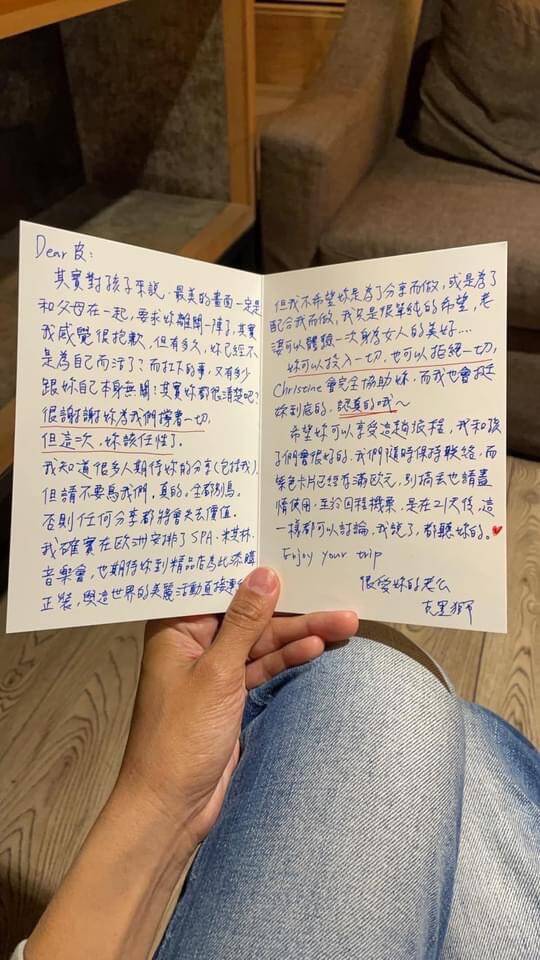 Dear 皮：
其實對孩子來說，最美的畫面一定是
和父母在一起，要求妳離開一陣子，其實
我感覺很抱歉，但有多久，妳已經不
是為自而活了？而扛下的事，又有多少
跟妳自己本身無關！其實妳都很清楚吧？
很謝謝妳為我們撐著一切，
但這一次，妳該任性了。
我知道很多人期待妳的分享(包括我)，
但請不要為我們，真的，全都別為。
否則任何分享都將會失去價值。
我確實在歐洲安排了SPA、米其林、
音樂會，也期待妳到精品店為此添購
正裝，與這世界的美麗活動直接
但我不希望妳是為了分享而做，或是為了
配合我而做，我只是很單純的希望，老
婆可以體驗一次身為女人的美好...
妳可以投入一切，也可以拒絕一切，
Christine會完全協助妳，而我也會挺
妳到底的，認真的哦～
希望妳可以享受這趟旅程，我和孩
子們會很好的，我們隨時保持聯絡，而
紫色卡片已經存滿歐元，到病去也請盡
情使用，至於回程機票，是在21天後，這
一樣都可以討論，我說了，都聽妳的。❤
Enjoy your trip
很愛妳的老公
克里斯